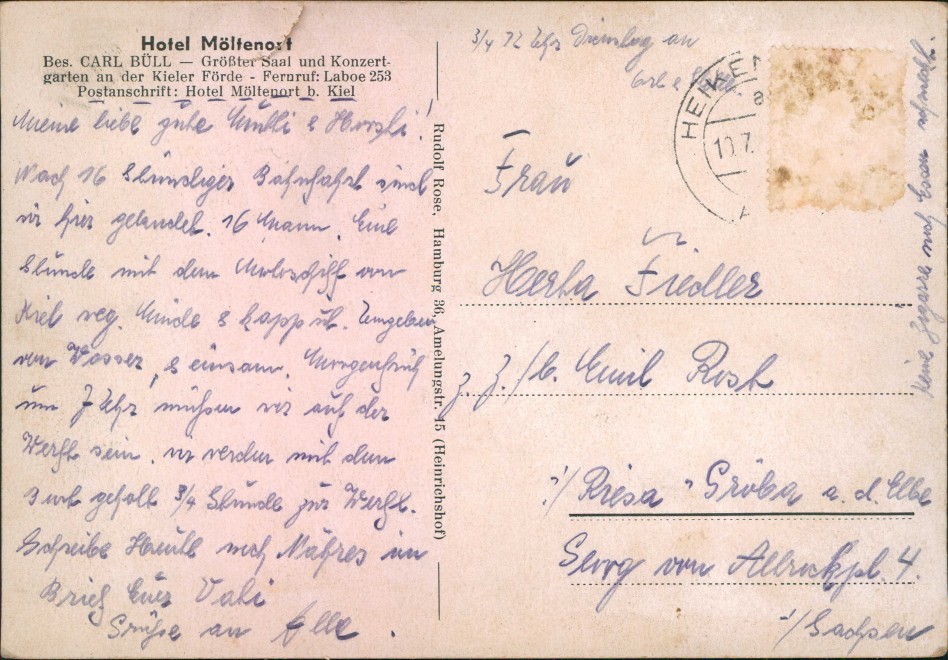 Hotel Möltenort
Bes. CARL BÜLL — Größter Saal und Konzert-
garten an der Kieler Förde - Fernruf: Laboe 253
Postanschrift: Hotel Möltenort b. Kiel
Meine liebe gute Mutti & Horsti!
Nach 16 Stündiger Bahnfahrt sind
wir hier gelandet. 16 Mann. Eine
Stunde mit dem Motorschiff von
Kiel weg. Müde & kapput. Umgeben
von Wasser, & einsam. Morgenfrüh
um 7 Uhr müssen wir auf der
Werft sein. wir werden mit dem
Boot geholt 3/4 Stunde zur Werft.
Schreibe Heute noch Nähres im
Brief Euer Vati
Grüße an Alle.
Rudolf Rose, Hamburg 36, Amelungstr. 15 (Heinrichshof)
3/4 12 Uhr Dienstag an
HEIKEN
10.7.
Frau
Herta Fiedler
z. Z. / b. Emil Rost
i/ Riesa - Gröba a. d. Elbe
Georg von Altrockpl. 4.
i/ Sachsen
keine Zigarre nach Essen